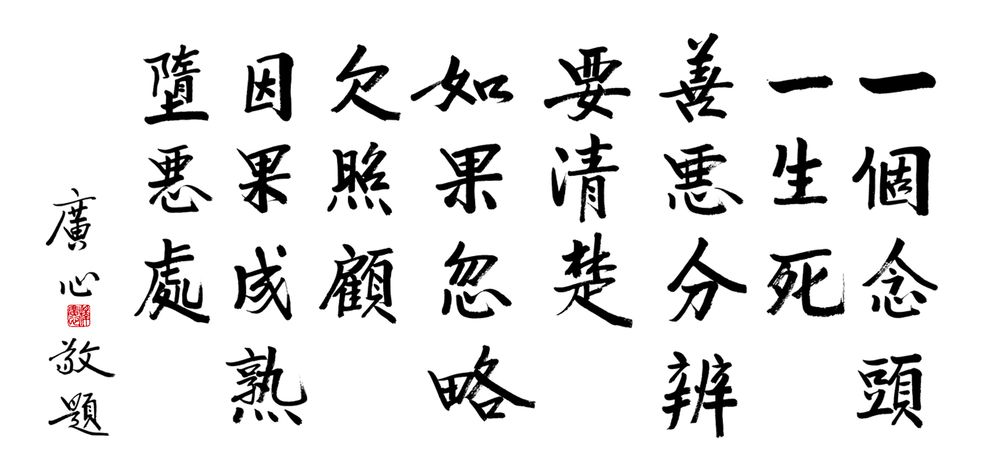 一個念頭
一生死
善惡分辨
要清楚
如果忽略
欠照顧
因果成熟
墮惡處
廣心敬題